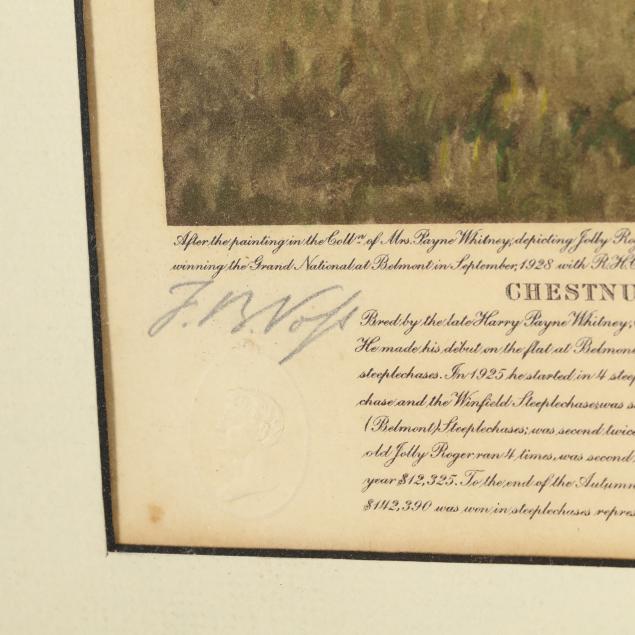 After the painting in the Coll.n of Mrs. Payne Whitney, depicting Jolly Rog
winning the Grand National at Belmont in September, 1928 with R.H.C
CHESTNU
F. B. Voss
Bred by the late Harry Payne Whitney;
He made his début on the flat at Belmont
steeplechases. In 1925 he started in 4 steep
chase and the Winfield Steeplechase; was s
(Belmont) Steeplechases; was second twice
old Jolly Roger ran 4 times, was second
year $12,325. To the end of the Autumn
$142,390 was won in steeplechases repres